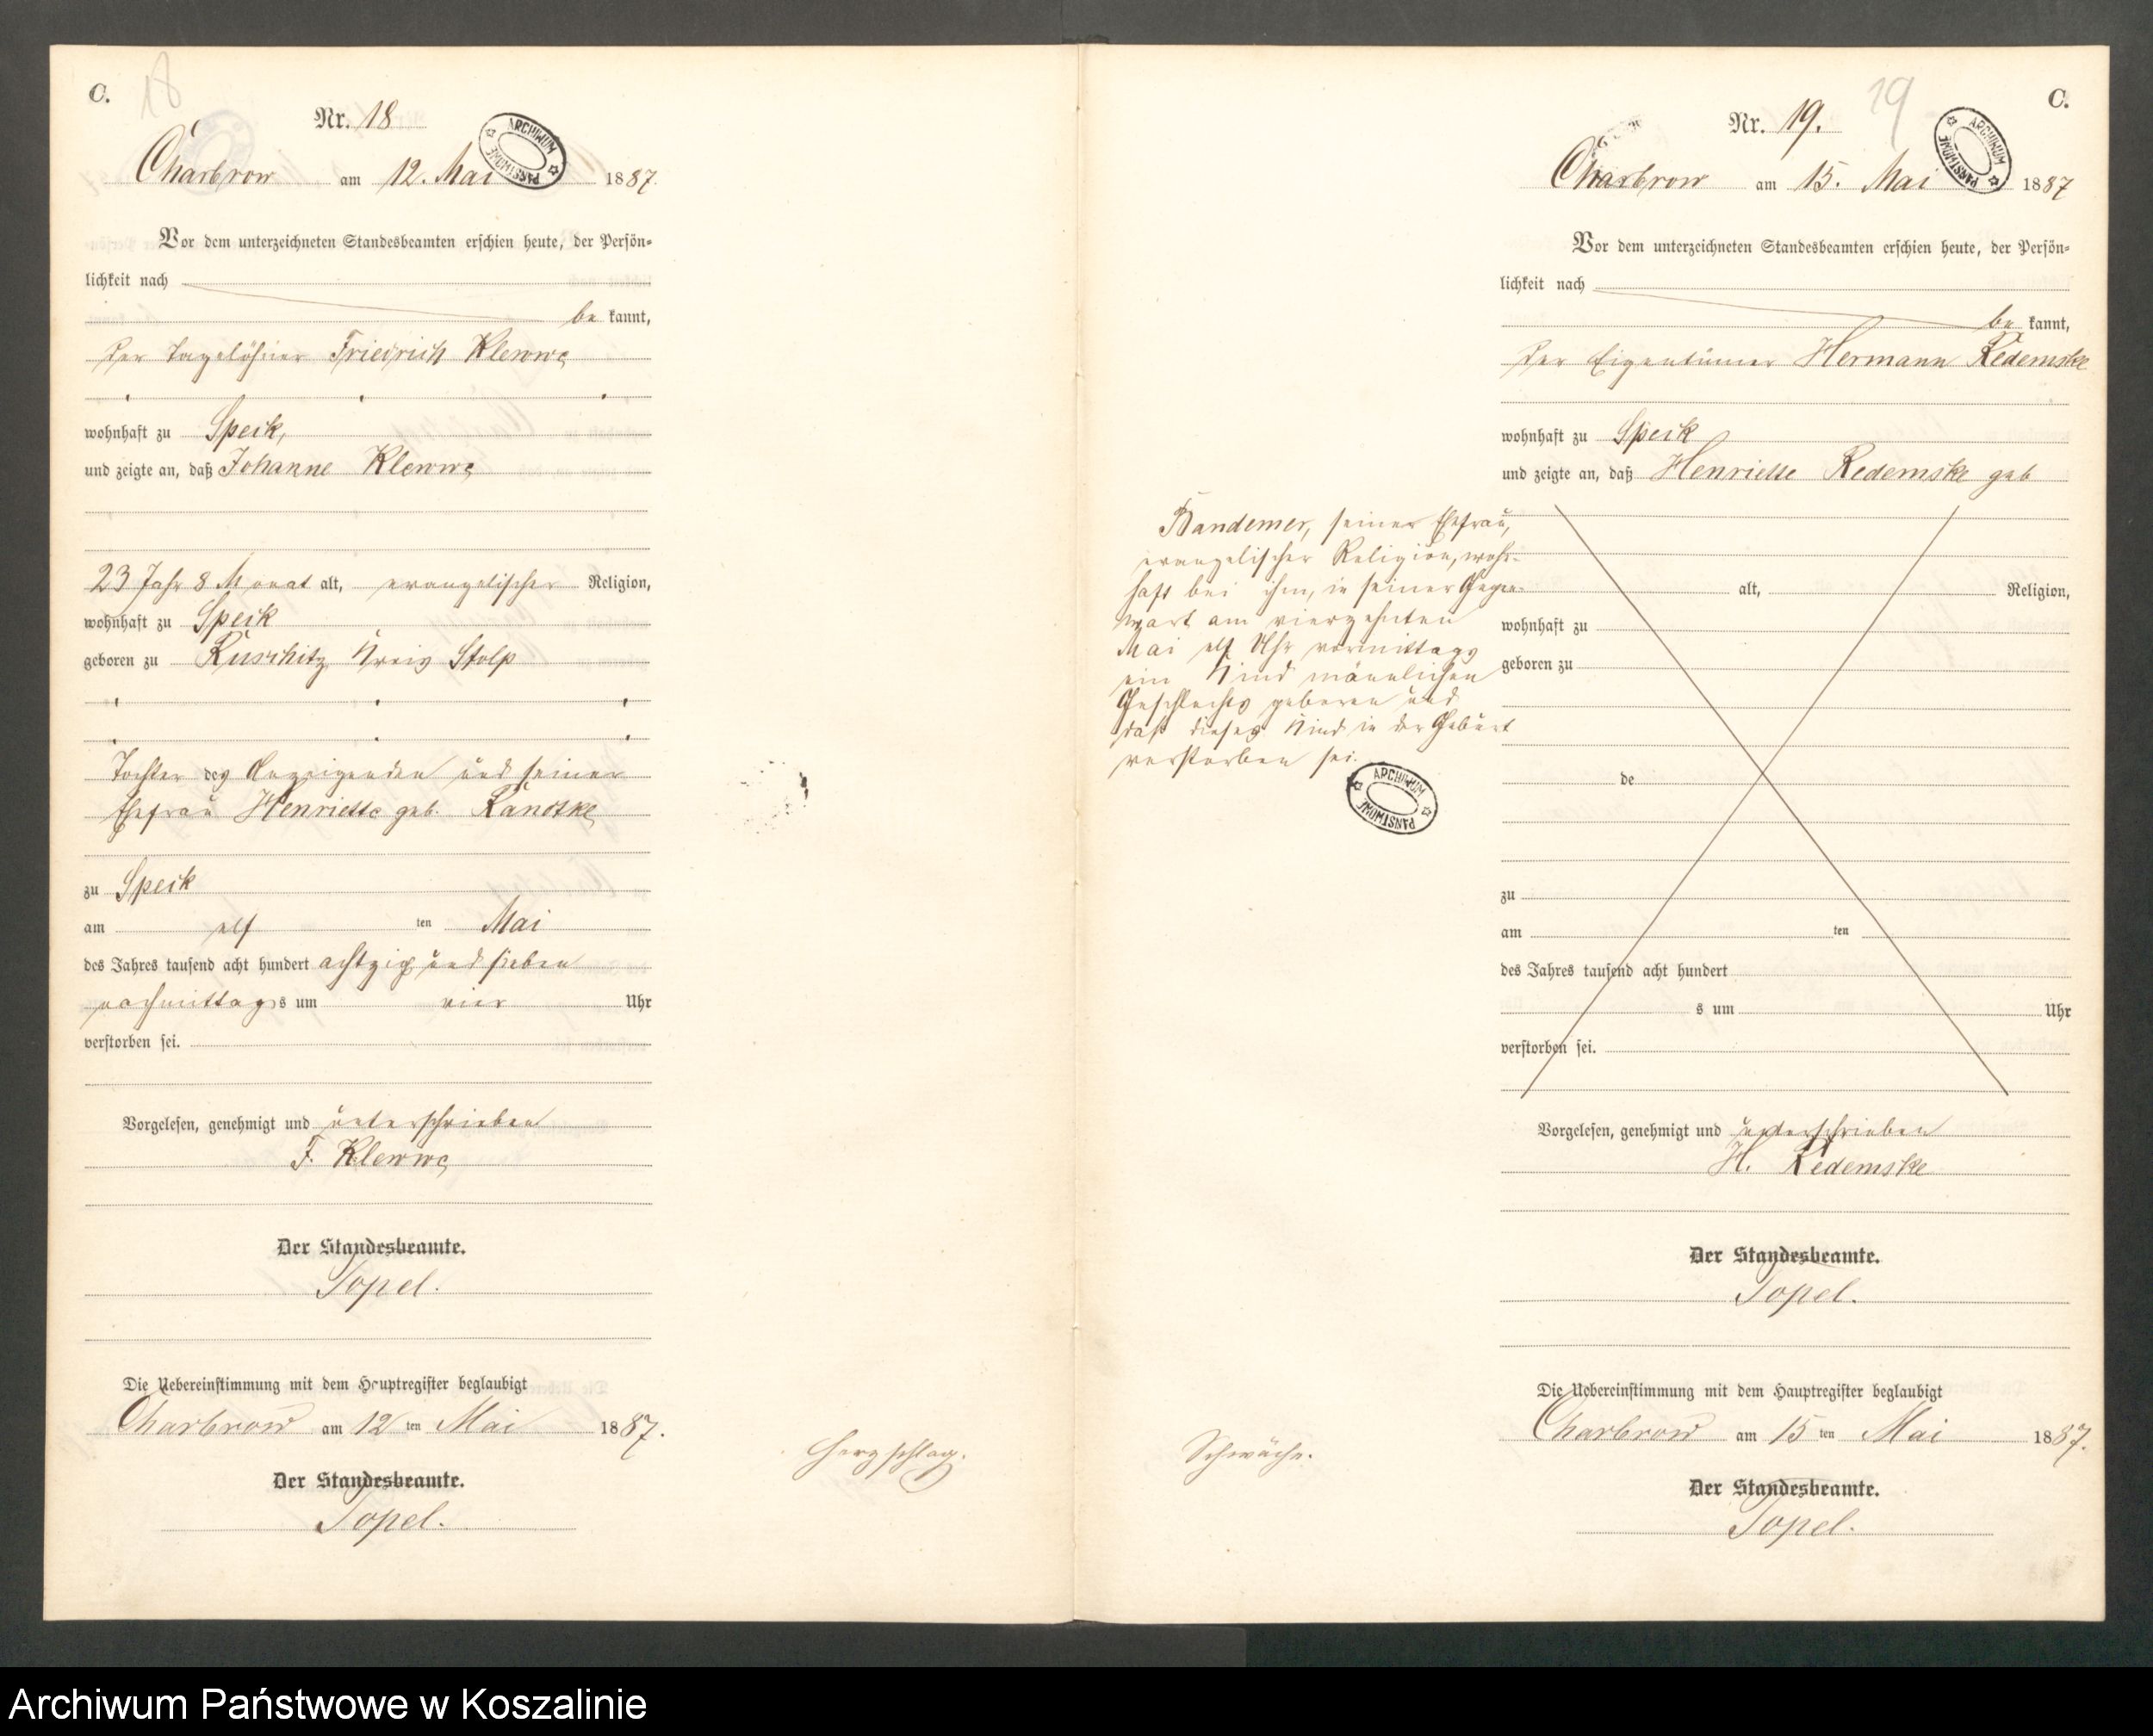 C.
18
Nr. 18
ARCHIWUM PAŃSTWOWE
Charbrow am 12. Mai 1887.
Vor dem unterzeichneten Standesbeamten erschien heute, der Persön-
lichkeit nach
be kannt,
der Tagelöhner Friedrich Klewwe
wohnhaft zu Speck,
und zeigte an, daß Johanne Klewwe
23 Jahr 8 Monat alt, evangelischer Religion,
wohnhaft zu Speck
geboren zu Ruschitz Kreis Stolp
Tochter des Anzeigenden und seiner
Ehefrau Henriette geb.
zu Speck
am elf ten Mai
des Jahres tausend acht hundert achtzig und sieben
nachmittags um vier Uhr
verstorben sei.
Vorgelesen, genehmigt und unterschrieben
F. Klewwe
Der Standesbeamte.
Topel.
Die Uebereinstimmung mit dem Hauptregister beglaubigt
Charbrow am 12 ten Mai 1887.
Der Standesbeamte.
Topel.
Herzschlag.
C.
19
Nr. 19.
ARCHIWUM PAŃSTWOWE
Charbrow am 15. Mai 1887
Vor dem unterzeichneten Standesbeamten erschien heute, der Persön-
lichkeit nach
be kannt,
der Eigentümer Hermann Redemske
wohnhaft zu Speck
und zeigte an, daß Henriette Redemske geb
Bandemer, seiner Ehefrau,
evangelischer Religion, wohn-
haft bei ihm, in seiner Gegen-
wart am vierzehnten
Mai elf Uhr vormittags
ein Kind männlichen
Geschlechts geboren und
daß dieses Kind in der Geburt
verstorben sei.
ARCHIWUM PAŃSTWOWE
alt, Religion,
wohnhaft zu
geboren zu
de
zu
am ten
des Jahres tausend acht hundert
s um Uhr
verstorben sei.
Vorgelesen, genehmigt und unterschrieben
H. Redemske
Der Standesbeamte.
Topel.
Die Uebereinstimmung mit dem Hauptregister beglaubigt
Charbrow am 15 ten Mai 1887.
Der Standesbeamte.
Topel.
Schwäche.
Archiwum Państwowe w Koszalinie